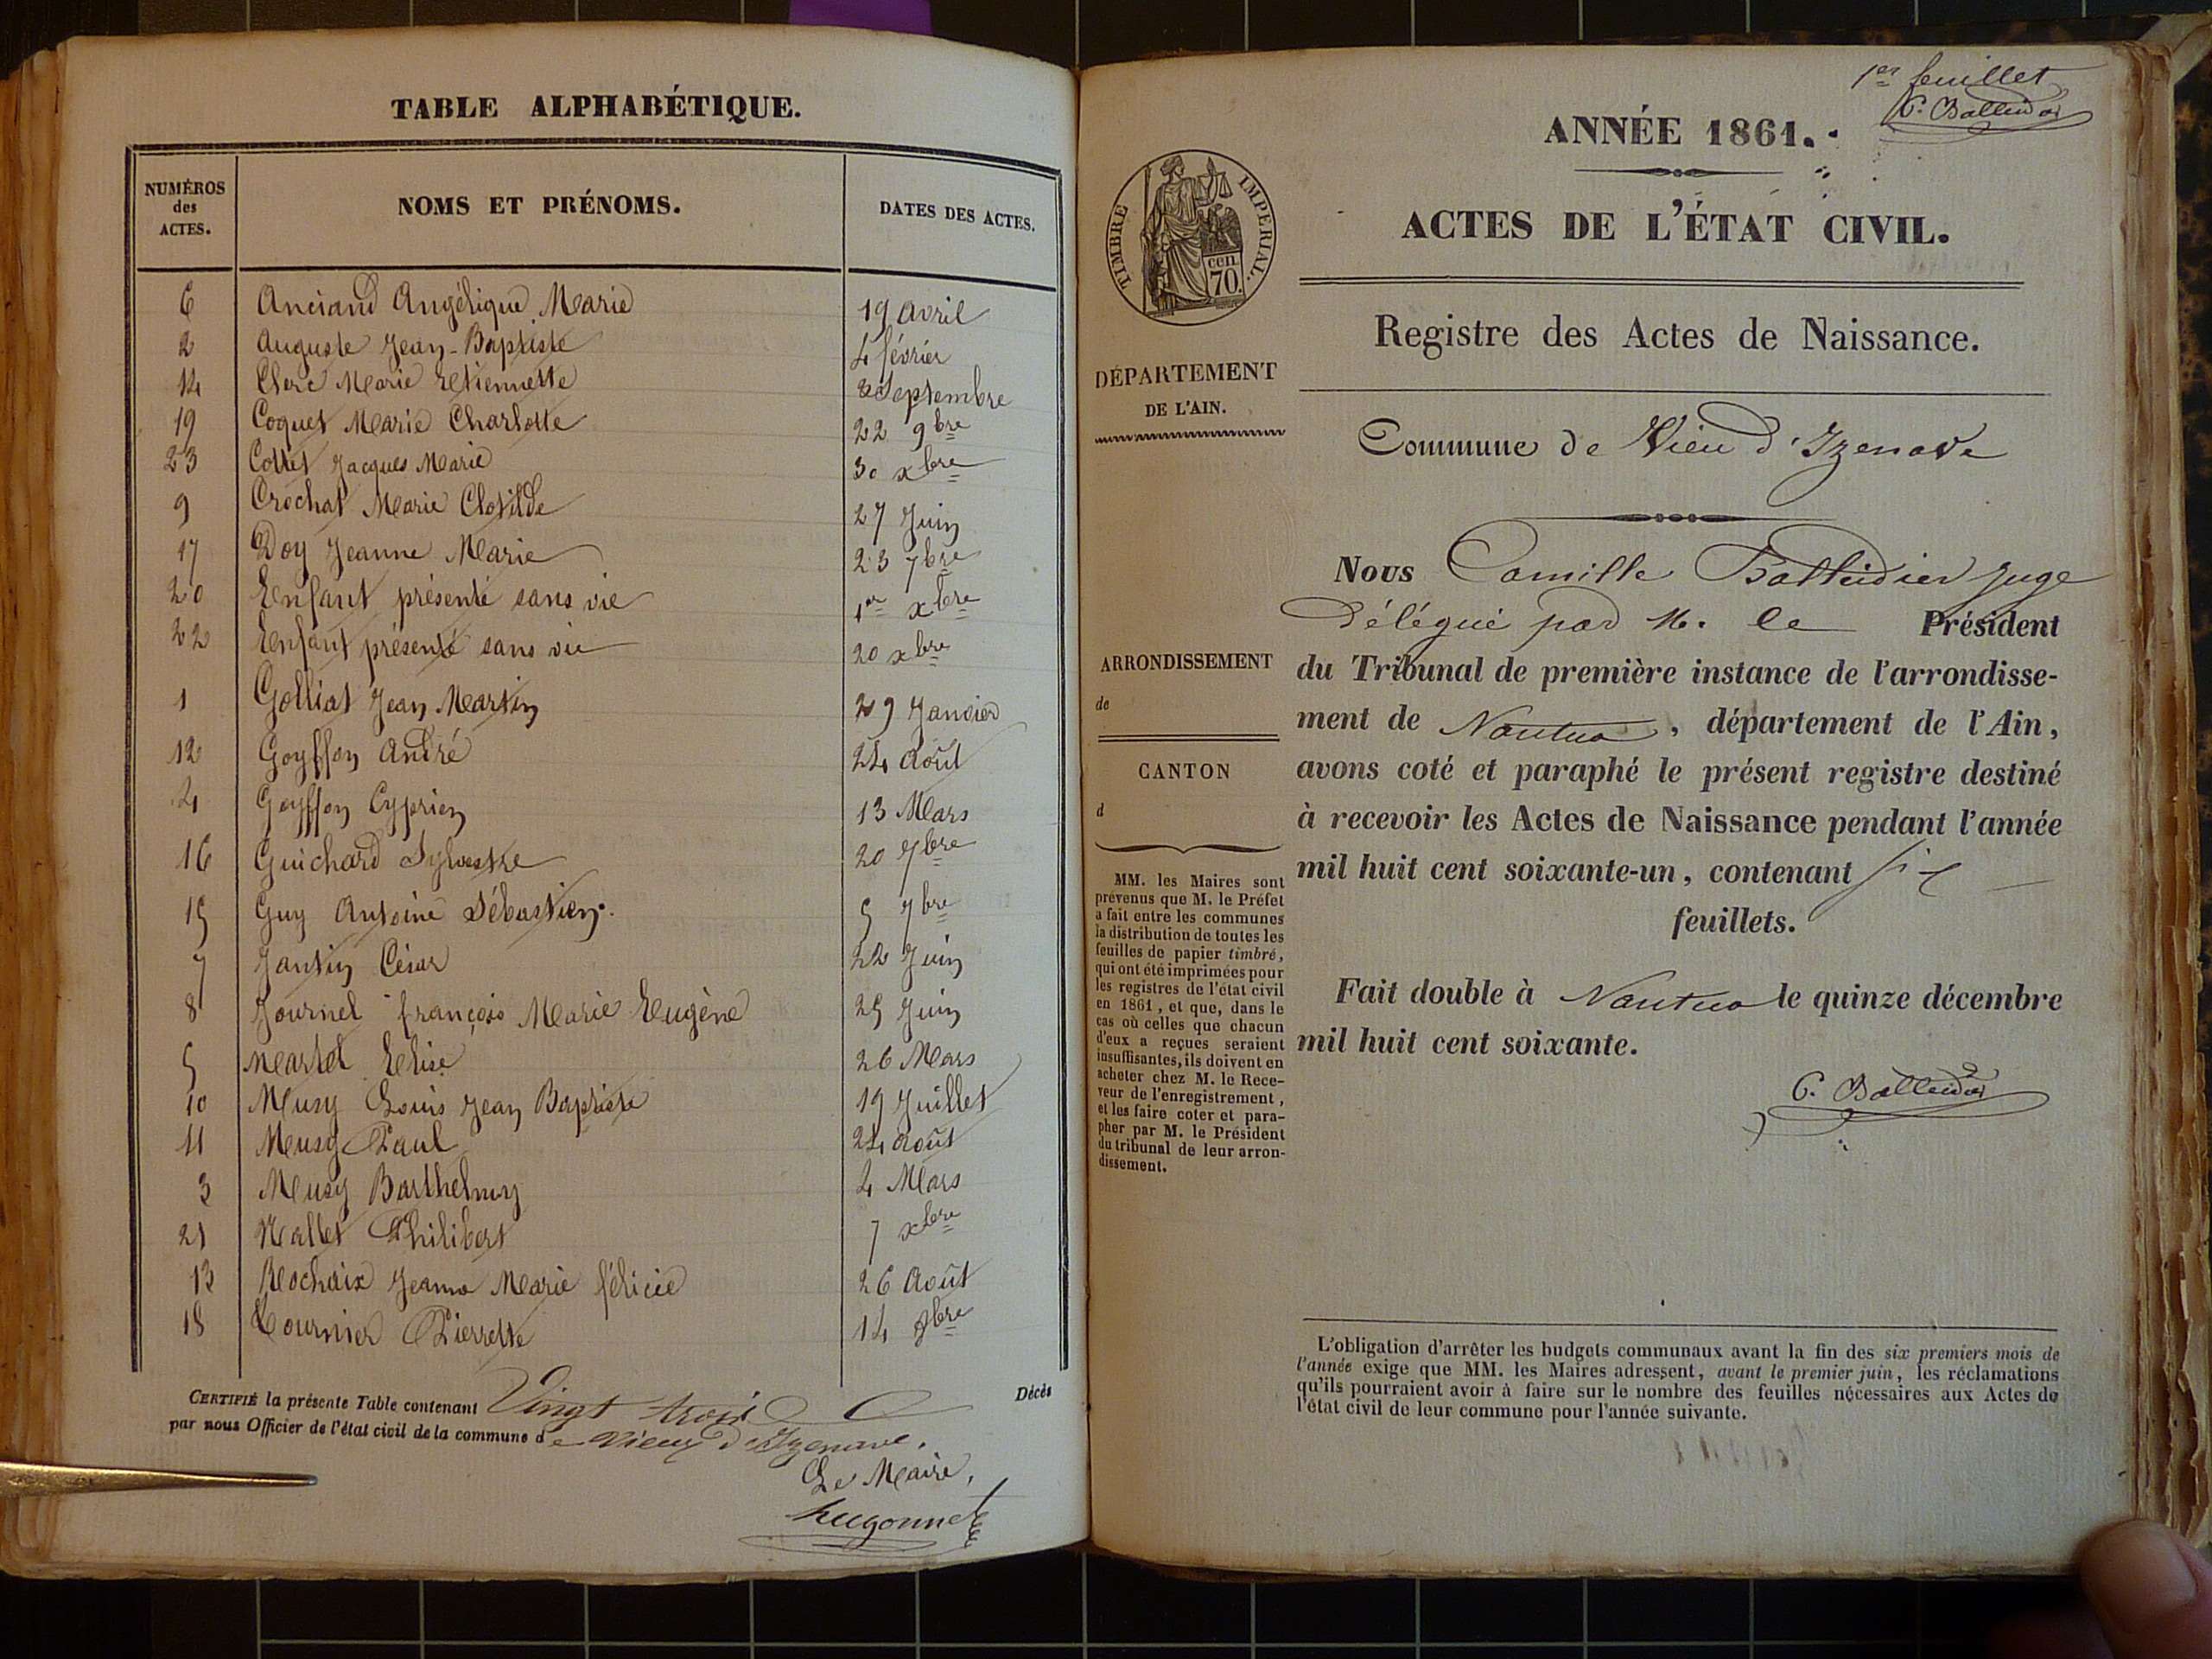 TABLE ALPHABÉTIQUE.
NUMÉROS des ACTES.
NOMS ET PRÉNOMS.
DATES DES ACTES.
6 Anciand Angélique Marie 19 avril
2 Auguste Jean-Baptiste 4 février
14 Clerc Marie Etiennette 2 Septembre
19 Coquet Marie Charlotte 22 9bre
23 Collet Jacques Marie 30 xbre
9 Crochat Marie Clotilde 27 Juin
17 Doy Jeanne Marie 23 7bre
20 Enfant présenté sans vie 1er xbre
22 Enfant présenté sans vie 20 xbre
1 Golliat Jean Martin 29 Janvier
12 Goyffon André 24 Août
4 Goyffon Cyprien 13 Mars
16 Guichard Sylvestre 20 7bre
15 Guy Antoine Sébastien. 5 7bre
7 Jantin César 22 Juin
8 Journel françois Marie Eugène 25 Juin
5 Martel Elise 26 Mars
10 Musy Louis Jean Baptiste 19 Juillet
11 Musy Paul 24 août
3 Musy Barthelmy 4 Mars
21 Nallet Philibert 7 xbre
13 Rochaix Jeanne Marie félicie 26 Août
18 Tournier Pierrette 14 9bre
CERTIFIÉ la présente Table contenant Vingt trois
Décès
par nous Officier de l'état civil de la commune de Vieux d'Izenave.
Le Maire,
Hugonnet
1er feuillet
C. Balleidier
ANNÉE 1861.
TIMBRE IMPERIAL.
cen. 70.
ACTES DE L'ÉTAT CIVIL.
Registre des Actes de Naissance.
DÉPARTEMENT
DE L'AIN.
Commune de Vieu d'Izenave
Nous Camille Balleidier juge
délégué par M. le Président
ARRONDISSEMENT
de
du Tribunal de première instance de l'arrondisse-
ment de Nantua, département de l'Ain,
CANTON
d
avons coté et paraphé le présent registre destiné
à recevoir les Actes de Naissance pendant l'année
mil huit cent soixante-un, contenant six
feuillets.
Fait double à Nantua le quinze décembre
mil huit cent soixante.
C. Balleidier
MM. les Maires sont
prévenus que M. le Préfet
a fait entre les communes
la distribution de toutes les
feuilles de papier timbré,
qui ont été imprimées pour
les registres de l'état civil
en 1861, et que, dans le
cas où celles que chacun
d'eux a reçues seraient
insuffisantes, ils doivent en
acheter chez M. le Rece-
veur de l'enregistrement,
et les faire coter et para-
pher par M. le Président
du tribunal de leur arron-
dissement.
L'obligation d'arrêter les budgets communaux avant la fin des six premiers mois de
l'année exige que MM. les Maires adressent, avant le premier juin, les réclamations
qu'ils pourraient avoir à faire sur le nombre des feuilles nécessaires aux Actes de
l'état civil de leur commune pour l'année suivante.